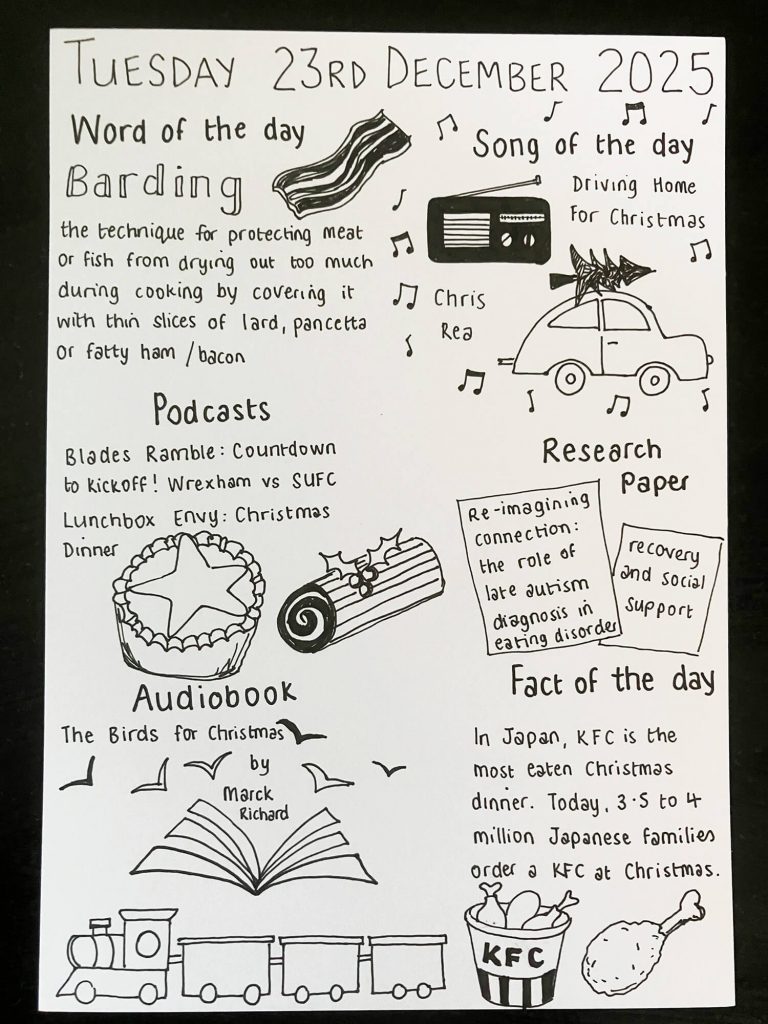 TUESDAY 23RD DECEMBER 2025
Word of the day
Barding
the technique for protecting meat
or fish from drying out too much
during cooking by covering it
with thin slices of lard, pancetta
or fatty ham /bacon
Song of the day
Driving Home
For Christmas
Chris
Rea
Podcasts
Blades Ramble: Countdown
to kickoff! Wrexham vs SUFC
Lunchbox Envy: Christmas
Dinner
Research
Paper
Re-imagining
connection:
the role of
late autism
diagnosis in
eating disorder
recovery
and social
support
Audiobook
The Birds for Christmas
by
Marck
Richard
Fact of the day
In Japan, KFC is the
most eaten Christmas
dinner. Today, 3·5 to 4
million Japanese families
order a KFC at Christmas.
KFC